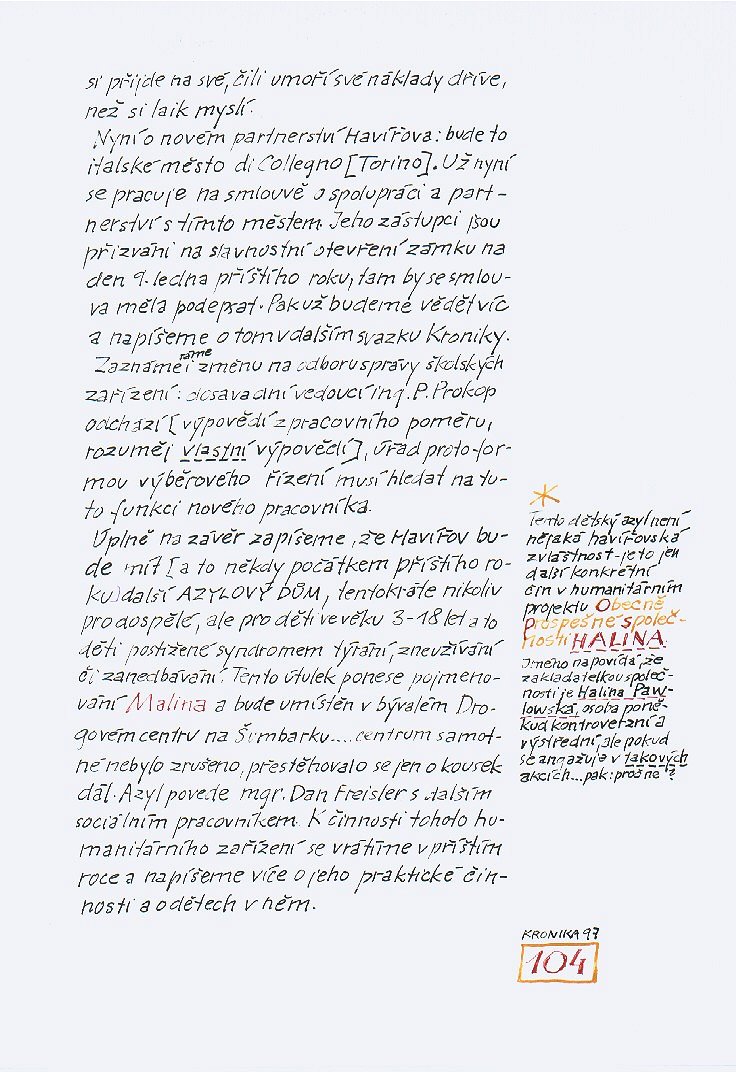 si přijde na své, čili umoří své náklady dříve,
než si laik myslí.
Nyní o novém partnerství Havířova: bude to
italské město di Collegno [Torino]. Už nyní
se pracuje na smlouvě o spolupráci a part-
nerství s tímto městem. Jeho zástupci jsou
přizváni na slavnostní otevření zámku na
den 9. ledna příštího roku, tam by se smlou-
va měla podepsat. Pak už budeme vědět víc
a napíšeme o tom v dalším svazku Kroniky.
Zaznamenáme změnu na odboru správy školských
zařízení: dosavadní vedoucí ing. P. Prokop
odchází [výpovědí z pracovního poměru,
rozuměj vlastní výpovědí], úřad proto for-
mou výběrového řízení musí hledat na tu-
to funkci nového pracovníka.
Úplně na závěr zapíšeme, že Havířov bu-
de mít [a to někdy počátkem příštího ro-
ku) další AZYLOVÝ DŮM, tentokráte nikoliv
pro dospělé, ale pro děti ve věku 3-18 let a to
děti postižené syndromem týrání, zneužívání
či zanedbávání. Tento útulek ponese pojmeno-
vání Malina a bude umístěn v bývalém Dro-
govém centru na Šumbarku.... centrum samot-
né nebylo zrušeno, přestěhovalo se jen o kousek
dál. Azyl povede mgr. Dan Freisler s dalším
sociálním pracovníkem. K činnosti tohoto hu-
manitárního zařízení se vrátíme v příštím
roce a napíšeme více o jeho praktické čin-
nosti a o dětech v něm.
*
Tento dětský azyl není
nějaká havířovská
zvláštnost - je to jen
další konkrétní
čin v humanitárním
projektu Obecně
prospěšné společ-
nosti HALINA.
Jméno napovídá, že
zakladatelkou společ-
nosti je Halina Paw-
lowská, osoba poně-
kud kontroverzní a
výstřední, ale pokud
se angažuje v takových
akcích... pak: proč ne?
KRONIKA 97
104